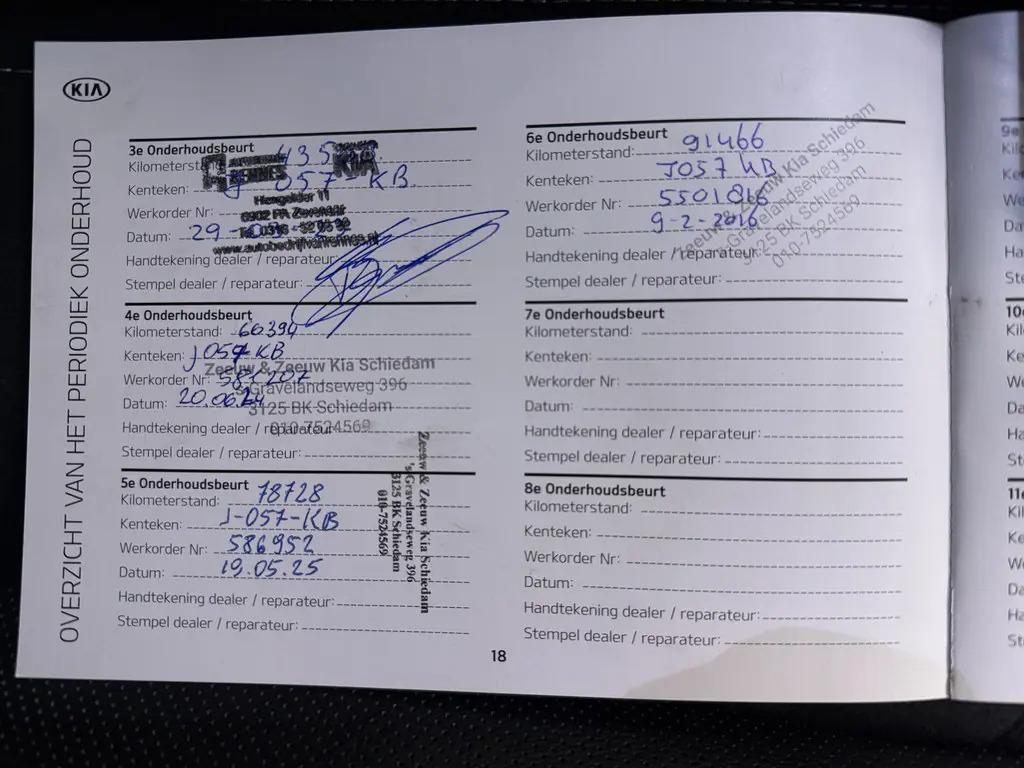 KIA
OVERZICHT VAN HET PERIODIEK ONDERHOUD
3e Onderhoudsbeurt
Kilometerstand:
Kenteken: J-057-KB
KIA
Hengelder 11
6902 PA Zevenaar
Werkorder Nr:
Datum: 29-
www.autobedrijfhamennes.nl
Handtekening dealer / reparateur:
Stempel dealer / reparateur:
4e Onderhoudsbeurt
Kilometerstand: 60394
Kenteken: J057KB
Zeeuw & Zeeuw Kia Schiedam
Werkorder Nr: 581207
's Gravelandseweg 396
Datum: 20.06.24
3125 BK Schiedam
Handtekening dealer / reparateur:
010-7524569
Stempel dealer / reparateur:
5e Onderhoudsbeurt
Kilometerstand: 78728
Kenteken: J-057-KB
Werkorder Nr: 586952
Datum: 19.05.25
Handtekening dealer / reparateur:
Stempel dealer / reparateur:
Zeeuw & Zeeuw Kia Schiedam
's Gravelandseweg 396
3125 BK Schiedam
010-7524569
6e Onderhoudsbeurt
Kilometerstand: 91466
Kenteken: J057KB
Werkorder Nr: 5501816
Datum: 9-2-2016
Handtekening dealer / reparateur:
Stempel dealer / reparateur:
Zeeuw & Zeeuw Kia Schiedam
's Gravelandseweg 396
3125 BK Schiedam
010-7524569
7e Onderhoudsbeurt
Kilometerstand:
Kenteken:
Werkorder Nr:
Datum:
Handtekening dealer / reparateur:
Stempel dealer / reparateur:
8e Onderhoudsbeurt
Kilometerstand:
Kenteken:
Werkorder Nr:
Datum:
Handtekening dealer / reparateur:
Stempel dealer / reparateur:
18